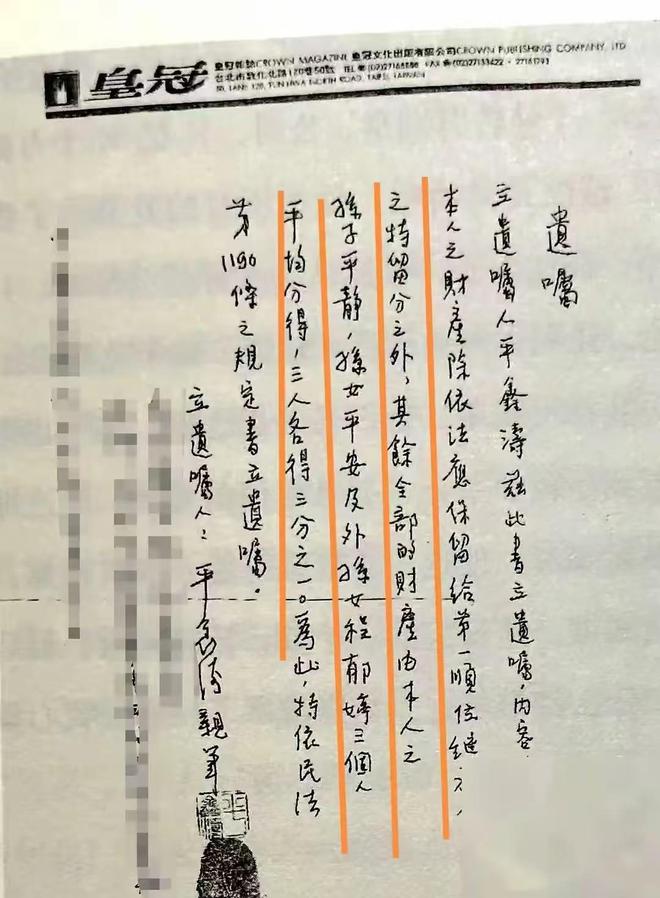 皇冠
皇冠雜誌CROWN MAGAZINE 皇冠文化出版有限公司CROWN PUBLISHING COMPANY, LTD
台北市敦化北路120巷50號 TEL:(02)27168888 FAX:(02)27133422・27161793
50, LANE 120, TUN HWA NORTH ROAD, TAIPEI, TAIWAN
遺囑
立遺囑人平鑫濤茲此書立遺囑,內容
本人之財產除依法應保留給第一順位繼
之特留分之外,其餘全部的財產由本人之
孫子平靜,孫女平安及外孫女程郁婷三個人
平均分得,三人各得三分之一。為此,特依民法
第1190條之規定書立遺囑。
立遺囑人:平鑫濤親筆